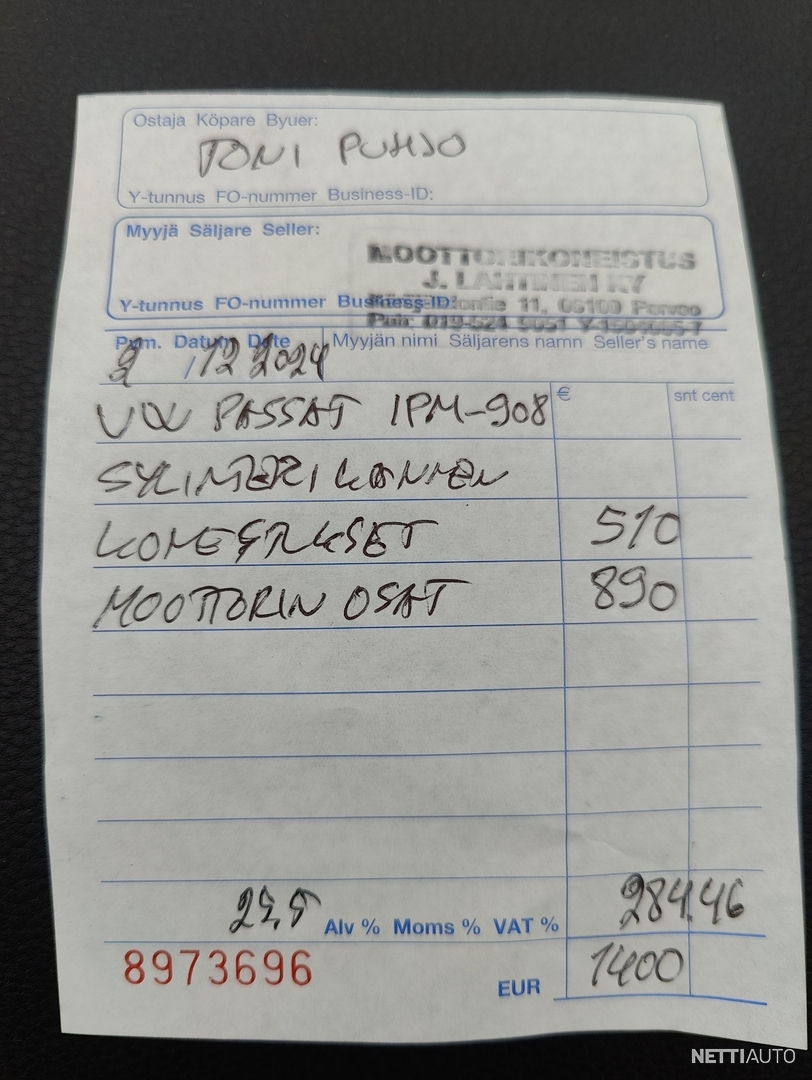 Ostaja Köpare Byuer:
TONI PUHJO
Y-tunnus FO-nummer Business-ID:
Myyjä Säljare Seller:
MOOTTORIKONEISTUS
J. LAHTINEN KY
Y-tunnus FO-nummer Business-ID:
11, 06100 Porvoo
Puh: 019-524
Pvm. Datum Date
Myyjän nimi Säljarens namn Seller's name
2 12 2024
VW PASSAT IPM-908
€ snt cent
SYLINTERIKANNEN
KONEISTUKSET 510
MOOTTORIN OSAT 890
25,5 Alv % Moms % VAT % 284.46
8973696
EUR 1400
NETTIAUTO